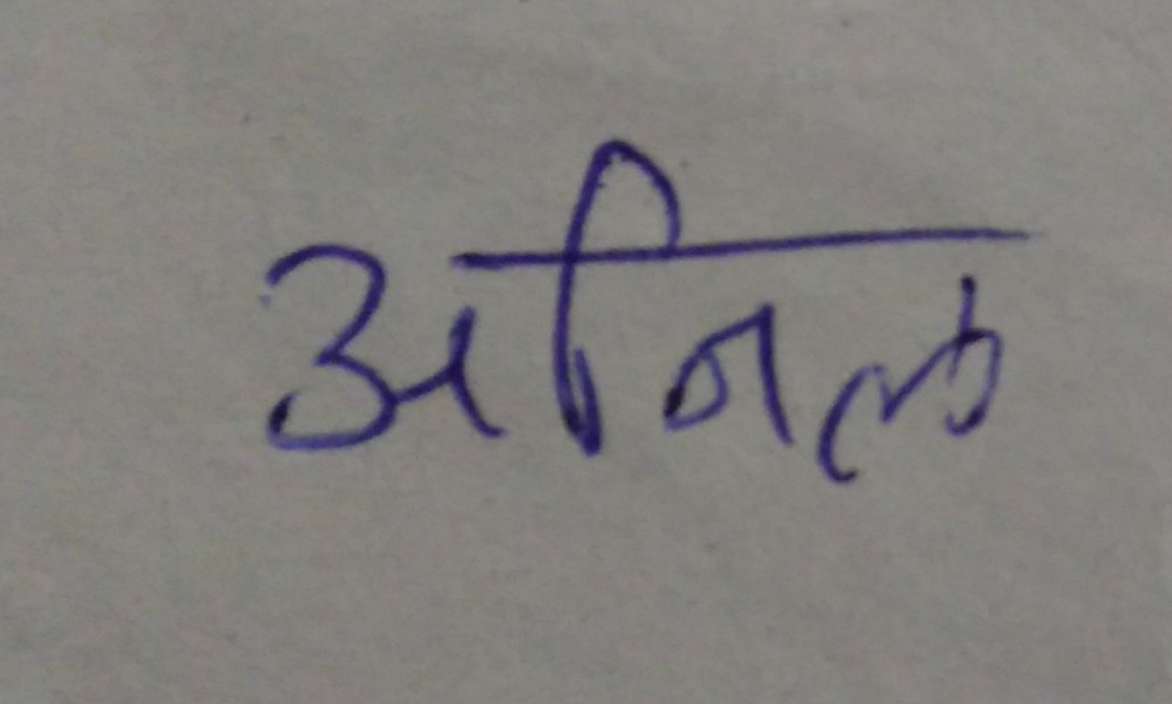 अनिल